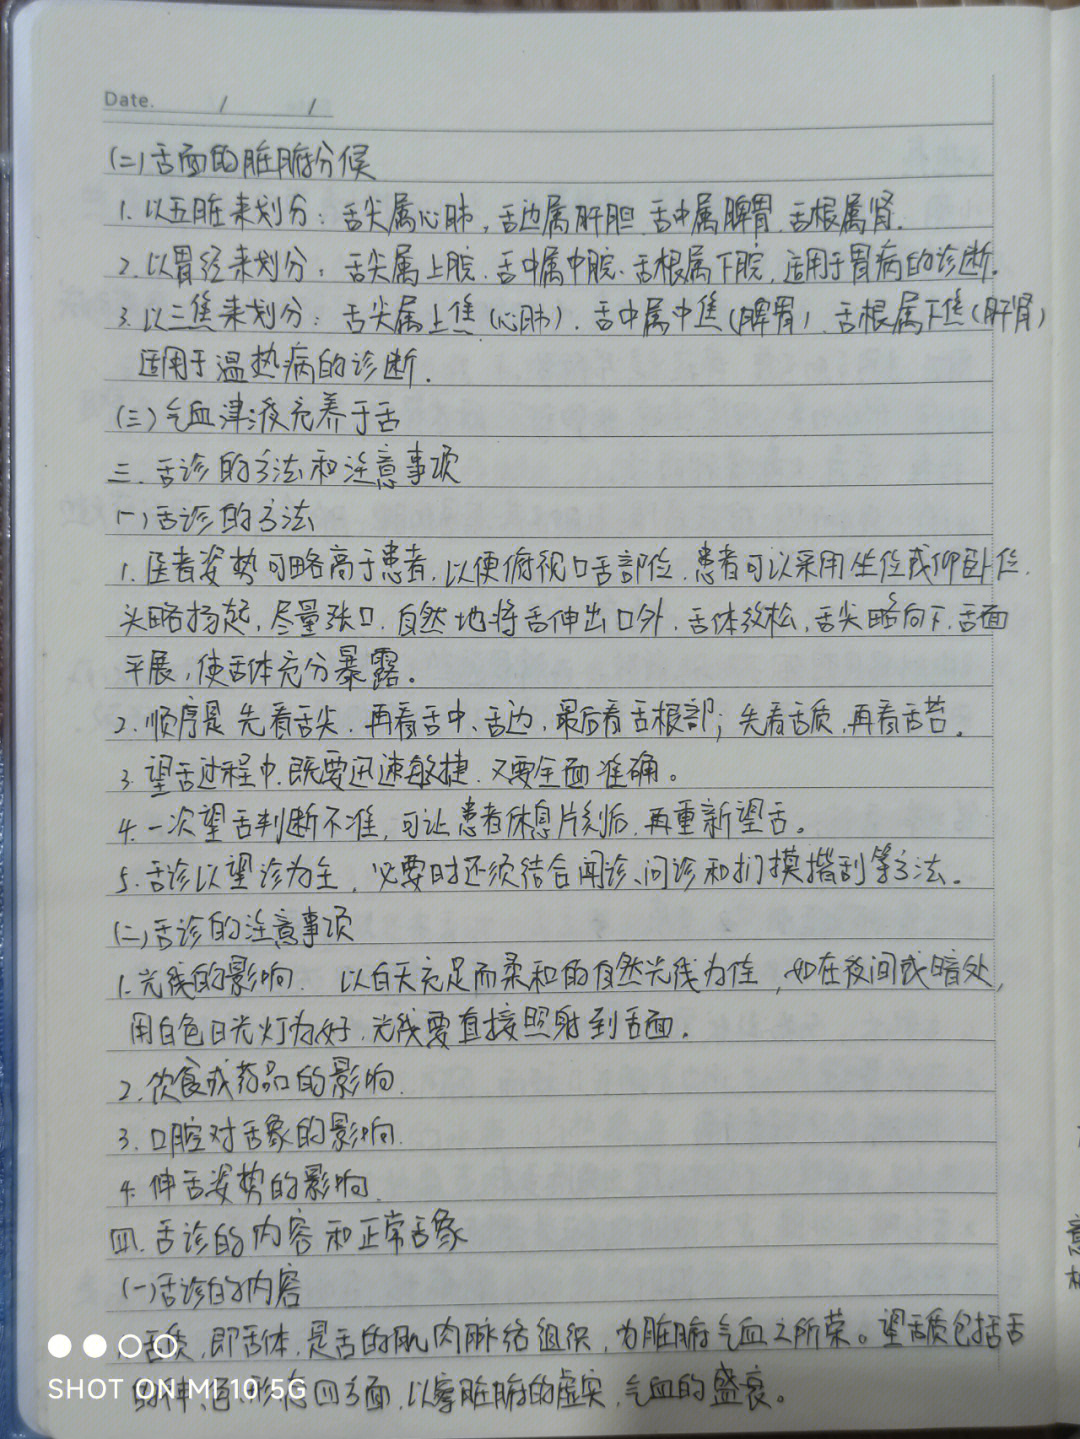 Date.      /      /
(二)舌面的脏腑分候
1. 以五脏来划分:舌尖属心肺,舌边属肝胆、舌中属脾胃、舌根属肾.
2. 以胃经来划分:舌尖属上脘、舌中属中脘、舌根属下脘,适用于胃病的诊断.
3. 以三焦来划分:舌尖属上焦(心肺)、舌中属中焦(脾胃)、舌根属下焦(肝肾)
适用于温热病的诊断.
(三)气血津液充养于舌
三.舌诊的方法和注意事项
(一)舌诊的方法
1. 医者姿势可略高于患者,以便俯视口舌部位.患者可以采用坐位或仰卧位.
头略扬起,尽量张口,自然地将舌伸出口外,舌体放松,舌尖略向下,舌面
平展,使舌体充分暴露。
2. 顺序是先看舌尖,再看舌中、舌边,最后看舌根部;先看舌质,再看舌苔.
3. 望舌过程中,既要迅速敏捷,又要全面准确。
4. 一次望舌判断不准,可让患者休息片刻后,再重新望舌。
5. 舌诊以望诊为主,必要时还须结合闻诊、问诊和扪摸揩刮等方法.
(二)舌诊的注意事项
1. 光线的影响. 以白天充足而柔和的自然光线为佳,如在夜间或暗处,
用白色日光灯为好,光线要直接照射到舌面.
2. 饮食或药品的影响.
3. 口腔对舌象的影响.
4. 伸舌姿势的影响.
四.舌诊的内容和正常舌象
(一)舌诊的内容
舌质,即舌体,是舌的肌肉脉络组织,为脏腑气血之所荣。望舌质包括舌
的神、色、形、态四方面,以察脏腑的虚实,气血的盛衰。
SHOT ON MI 10 5G